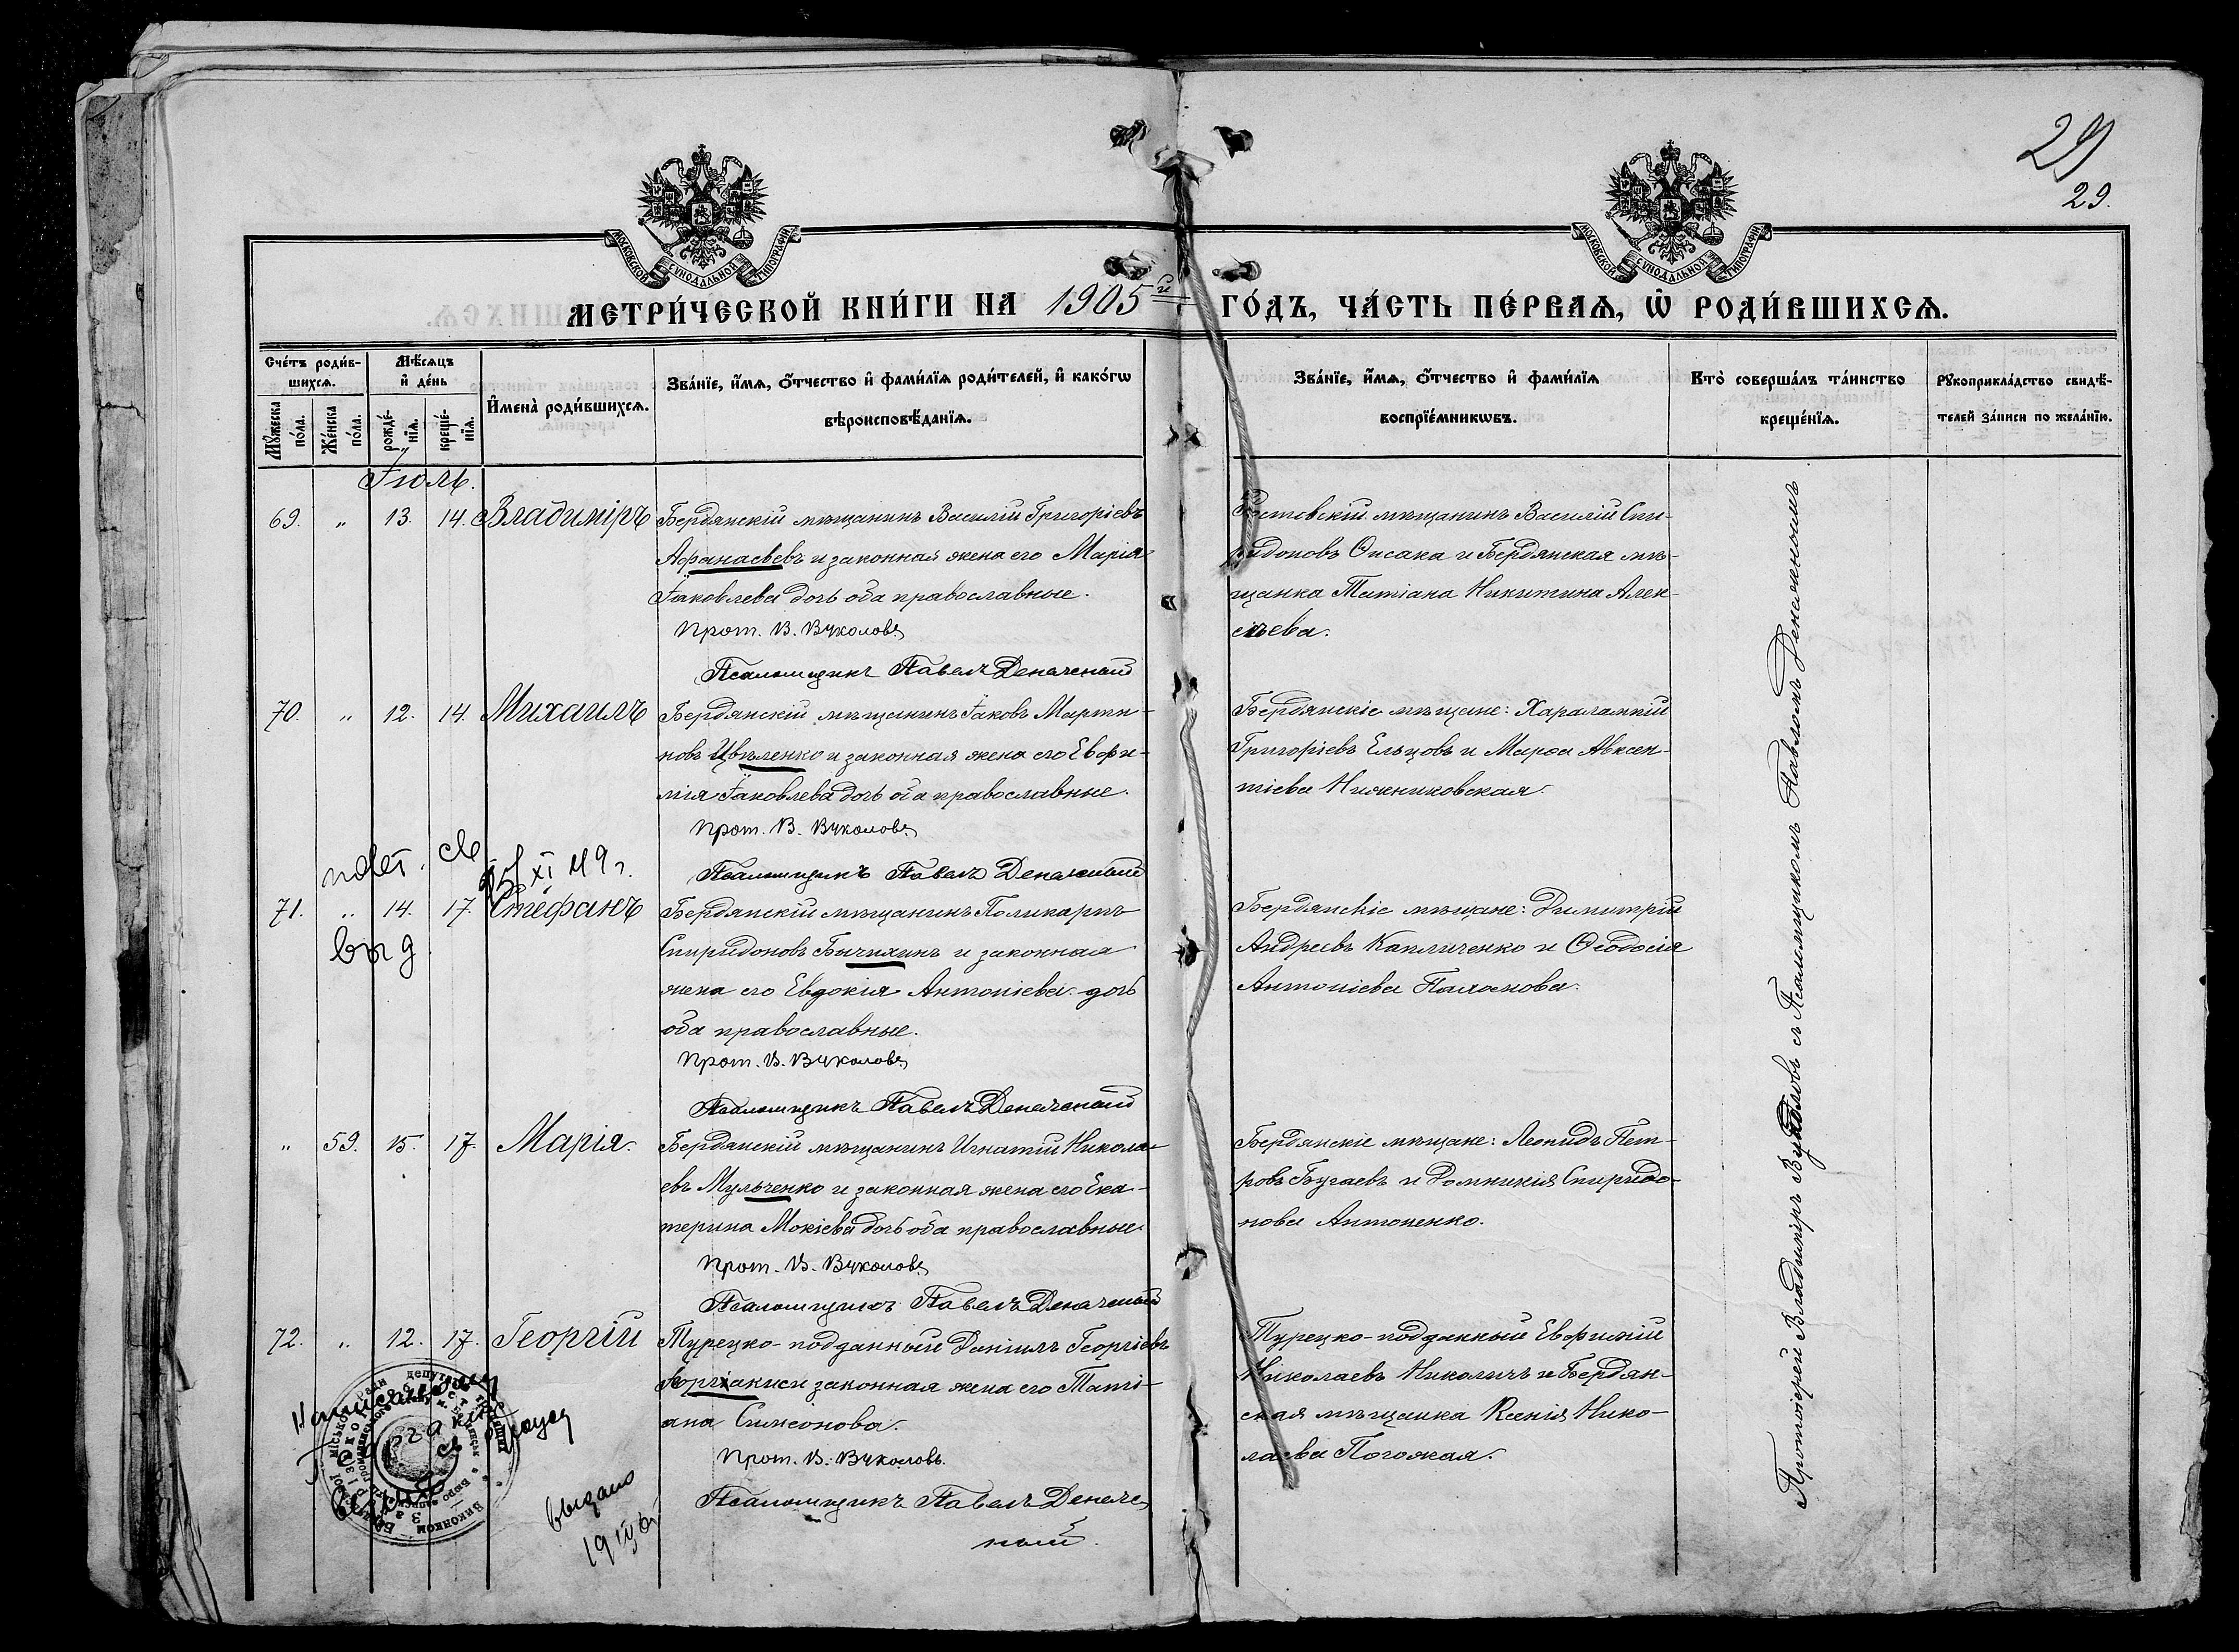 29
29.
МОСКОВСКОЙ СѴНОДАЛЬНОЙ ТИПОГРАФІИ
МОСКОВСКОЙ СѴНОДАЛЬНОЙ ТИПОГРАФІИ
МЕТРИ́ЧЕСКОЙ КНИ́ГИ НА 1905й ГО́ДЪ, ЧА́СТЬ ПЕ́РВАѦ, Ѽ РОДИ́ВШИХСѦ.
Сче́тъ роди́в-
шихсѧ.
Мꙋ́жеска по́ла.
Же́нска по́ла.
Мѣ́сѧцъ и҆ де́нь
рожде́-
нїѧ.
креще́-
нїѧ.
И҆мена̀ роди́вшихсѧ.
Зва́нїе, и҆́мѧ, ѻ҆́тчество и҆ фамѝлїѧ роди́телей, и҆ како́гѡ
вѣроисповѣ́данїѧ.
Зва́нїе, и҆́мѧ, ѻ҆́тчество и҆ фами́лїѧ
воспрїе́мникѡвъ.
Кто̀ соверша́лъ та́инство
креще́нїѧ.
Рꙋкоприкла́дство свидѣ́-
телей за́писи по жела́нїю.
Іюль.
69. " 13. 14. Владиміръ
Бердянскій мѣщанинъ Василій Григоріевъ
Афанасьевъ и законная жена его Марія
Іаковлева дочь оба православные.
Прот. В. Вуколовъ
Псаломщикъ Павелъ
Ростовскій мѣщанинъ Василій Спи-
ридоновъ Оисака и Бердянская мѣ-
щанка Татіана Никитина Алек-
сѣева.
70. " 12. 14. Михаилъ
Бердянскій мѣщанинъ Іаковъ Марти-
новъ Цвѣленко и законная жена его Евфи-
мія Іаковлева дочь оба православные.
Прот. В. Вуколовъ
Псаломщикъ Павелъ
Бердянскіе мѣщане: Харалампій
Григоріевъ Ельцовъ и Марѳа Авксен-
тіева Нижниковская.
XI 49 г.
71. " 14. 17. Стефанъ
Бердянскій мѣщанинъ Поликарпъ
Спиридоновъ Бычихинъ и законная
жена его Евдокія Антоніева дочь
оба православные.
Прот. В. Вуколовъ
Псаломщикъ Павелъ
Бердянскіе мѣщане: Димитрій
Андреевъ Капличенко и Ѳеодосія
Антоніева Пахомова.
" 59. 15. 17. Марія.
Бердянскій мѣщанинъ Игнатій Никола-
евъ Мульченко и законная жена его Ека-
терина Мокіева дочь оба православные.
Прот. В. Вуколовъ
Псаломщикъ Павелъ
Бердянскіе мѣщане: Леонидъ Пет-
ровъ Бугаевъ и Домникія Спиридо-
нова Антоненко.
72. " 12. 17. Георгій
Турецко-подданный Даніилъ Георгіевъ
Горгіакиси законная жена его Тати-
ана Симеонова.
Прот. В. Вуколовъ.
Псаломщикъ Павелъ
Турецко-подданный Евфимій
Николаевъ Николичъ и Бердян-
ская мѣщанка Ксенія Нико-
лаева Погожая.
выдано
Протоіерей Владиміръ Вуколовъ съ Псаломщикомъ Павломъ